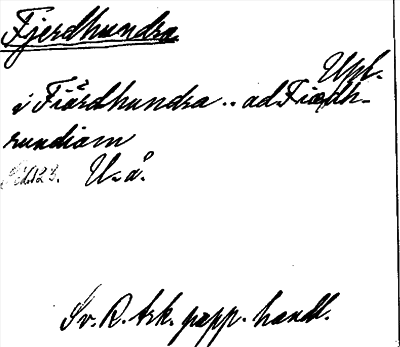 Fjerdhundra
Upl.
i Fiärdhundra .. ad Fiædh-
rundiam
U. å.
Sv. R. Ark. papp. handl.